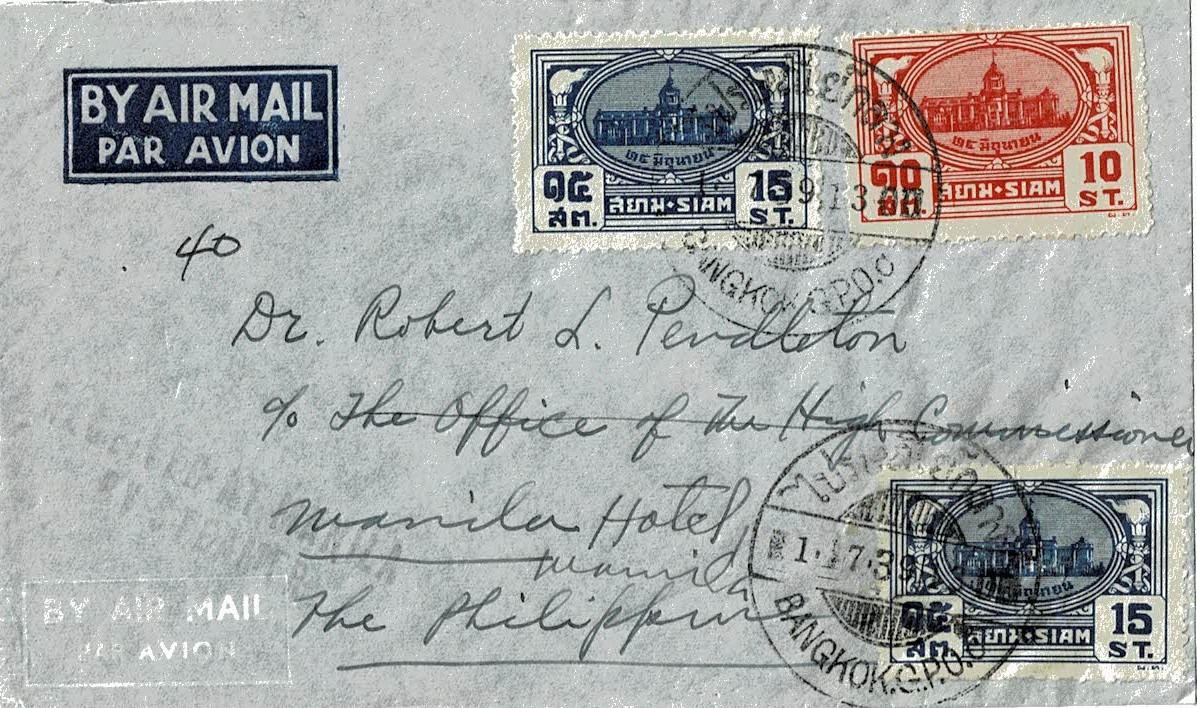 BY AIR MAIL
PAR AVION
๒๔ มิถุนายน
๑๕
สต.
สยาม·SIAM
15
ST.
๒๔ มิถุนายน
๑๐
สต.
สยาม·SIAM
10
ST.
BANGKOK.G.P.O.C
40
Dr. Robert L. Pendleton
c/o The Office of the High Commissioner
Manila Hotel
Manila
The Philippin
1.7.39
BANGKOK.G.P.O.C
๑๕
สต.
สยาม·SIAM
15
ST.
BY AIR MAIL
PAR AVION